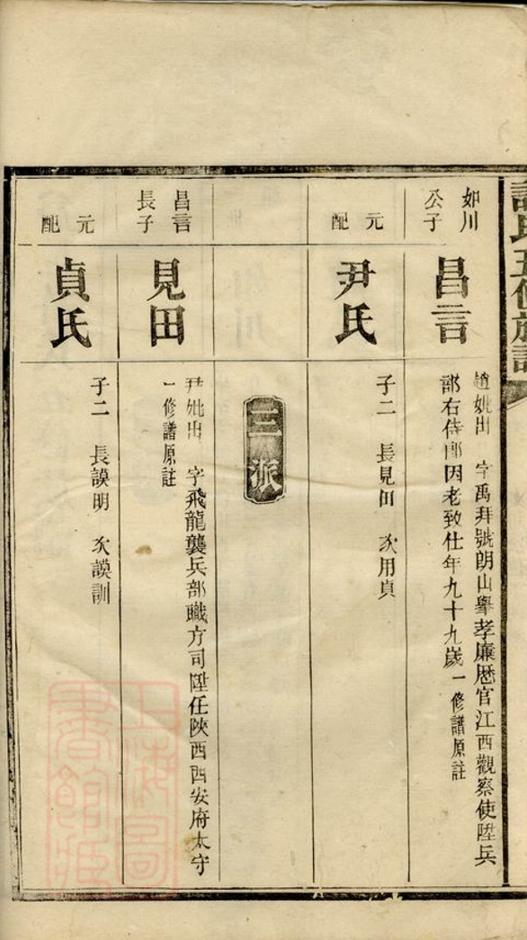 氏五修族譜
如川
公子
昌言
趙妣出 字禹拜號朗山舉孝廉歷官江西觀察使陞兵
部右侍郎因老致仕年九十九歲一修譜原註
元配
尹氏
子二 長見田 次用貞
三派
昌言
長子
見田
尹妣出 字飛龍襲兵部職方司陞任陜西西安府太守
一修譜原註
元配
貞氏
子二 長謨明 次謨訓
上海圖
書館藏